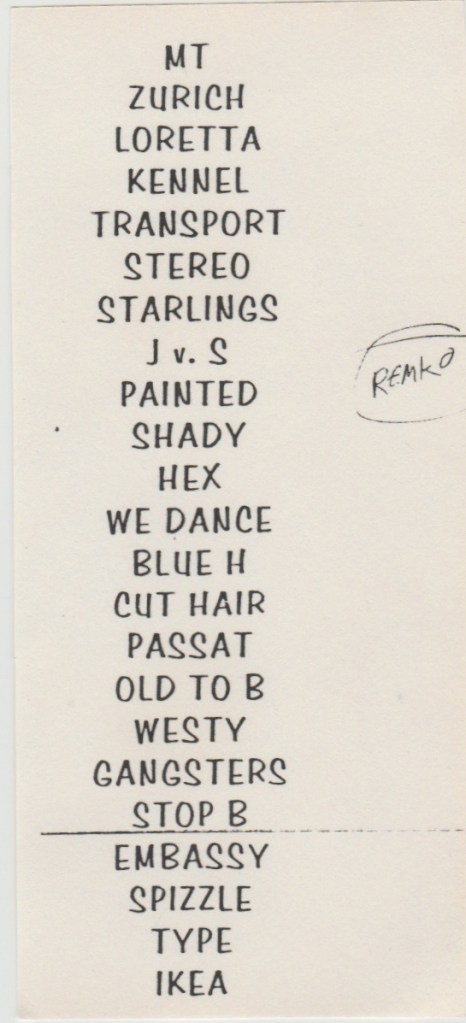 MT
ZURICH
LORETTA
KENNEL
TRANSPORT
STEREO
STARLINGS
J v. S
REMKO
PAINTED
SHADY
HEX
WE DANCE
BLUE H
CUT HAIR
PASSAT
OLD TO B
WESTY
GANGSTERS
STOP B
EMBASSY
SPIZZLE
TYPE
IKEA